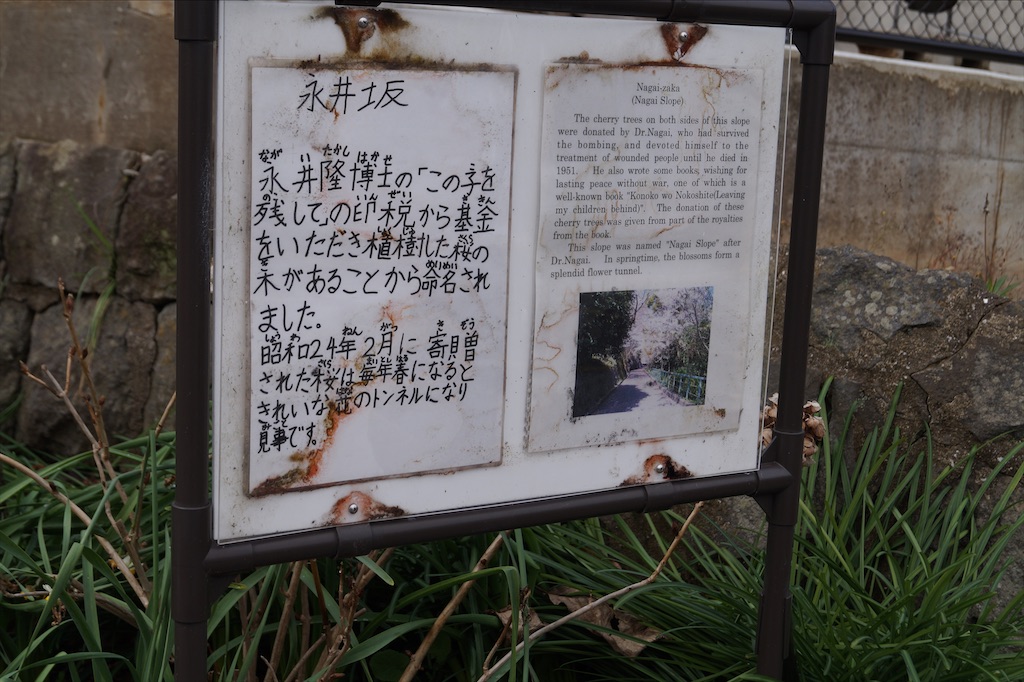 永井坂
永井隆博士の「この子を
残して」の印税から基金
をいただき植樹した桜の
木があることから命名され
ました。
昭和24年2月に寄贈
された桜は毎年春になると
きれいな花のトンネルになり
見事です。
Nagai-zaka
(Nagai Slope)
The cherry trees on both sides of this slope
were donated by Dr.Nagai, who had survived
the bombing, and devoted himself to the
treatment of wounded people until he died in
1951. He also wrote some books, wishing for
lasting peace without war, one of which is a
well-known book "Konoko wo Nokoshite(Leaving
my children behind)". The donation of these
cherry trees was given from part of the royalties
from the book.
This slope was named "Nagai Slope" after
Dr.Nagai. In springtime, the blossoms form a
splendid flower tunnel.